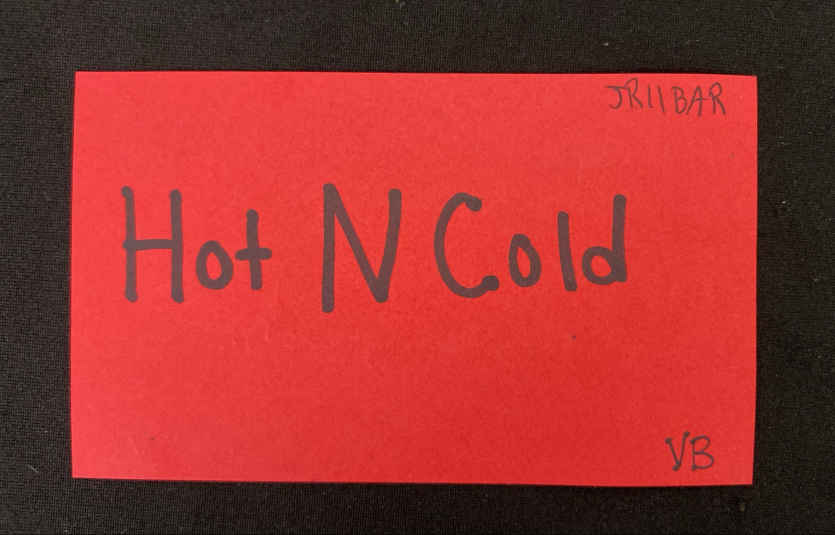 JR11BAR
Hot N Cold
VB